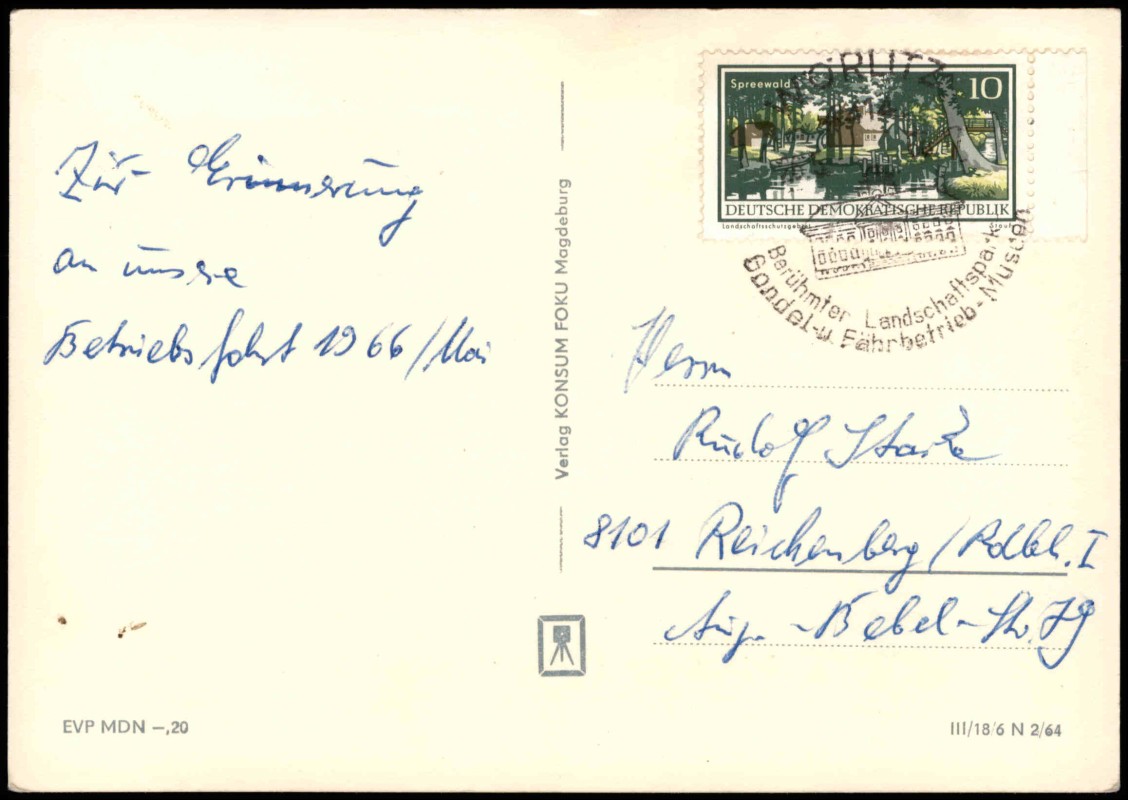 Zur Erinnerung
an unsere
Betriebsfahrt 1966/Mai
EVP MDN –,20
Verlag KONSUM FOKU Magdeburg
Spreewald
10
DEUTSCHE DEMOKRATISCHE REPUBLIK
Landschaftsschutzgebiet
WÖRLITZ
Berühmter Landschaftspark
Gondel- u. Fährbetrieb - Museen
Herrn
Rudolf
8101 Reichenberg/Rdbl. I
Aug.-Bebel-Str. 79
III/18/6 N 2/64